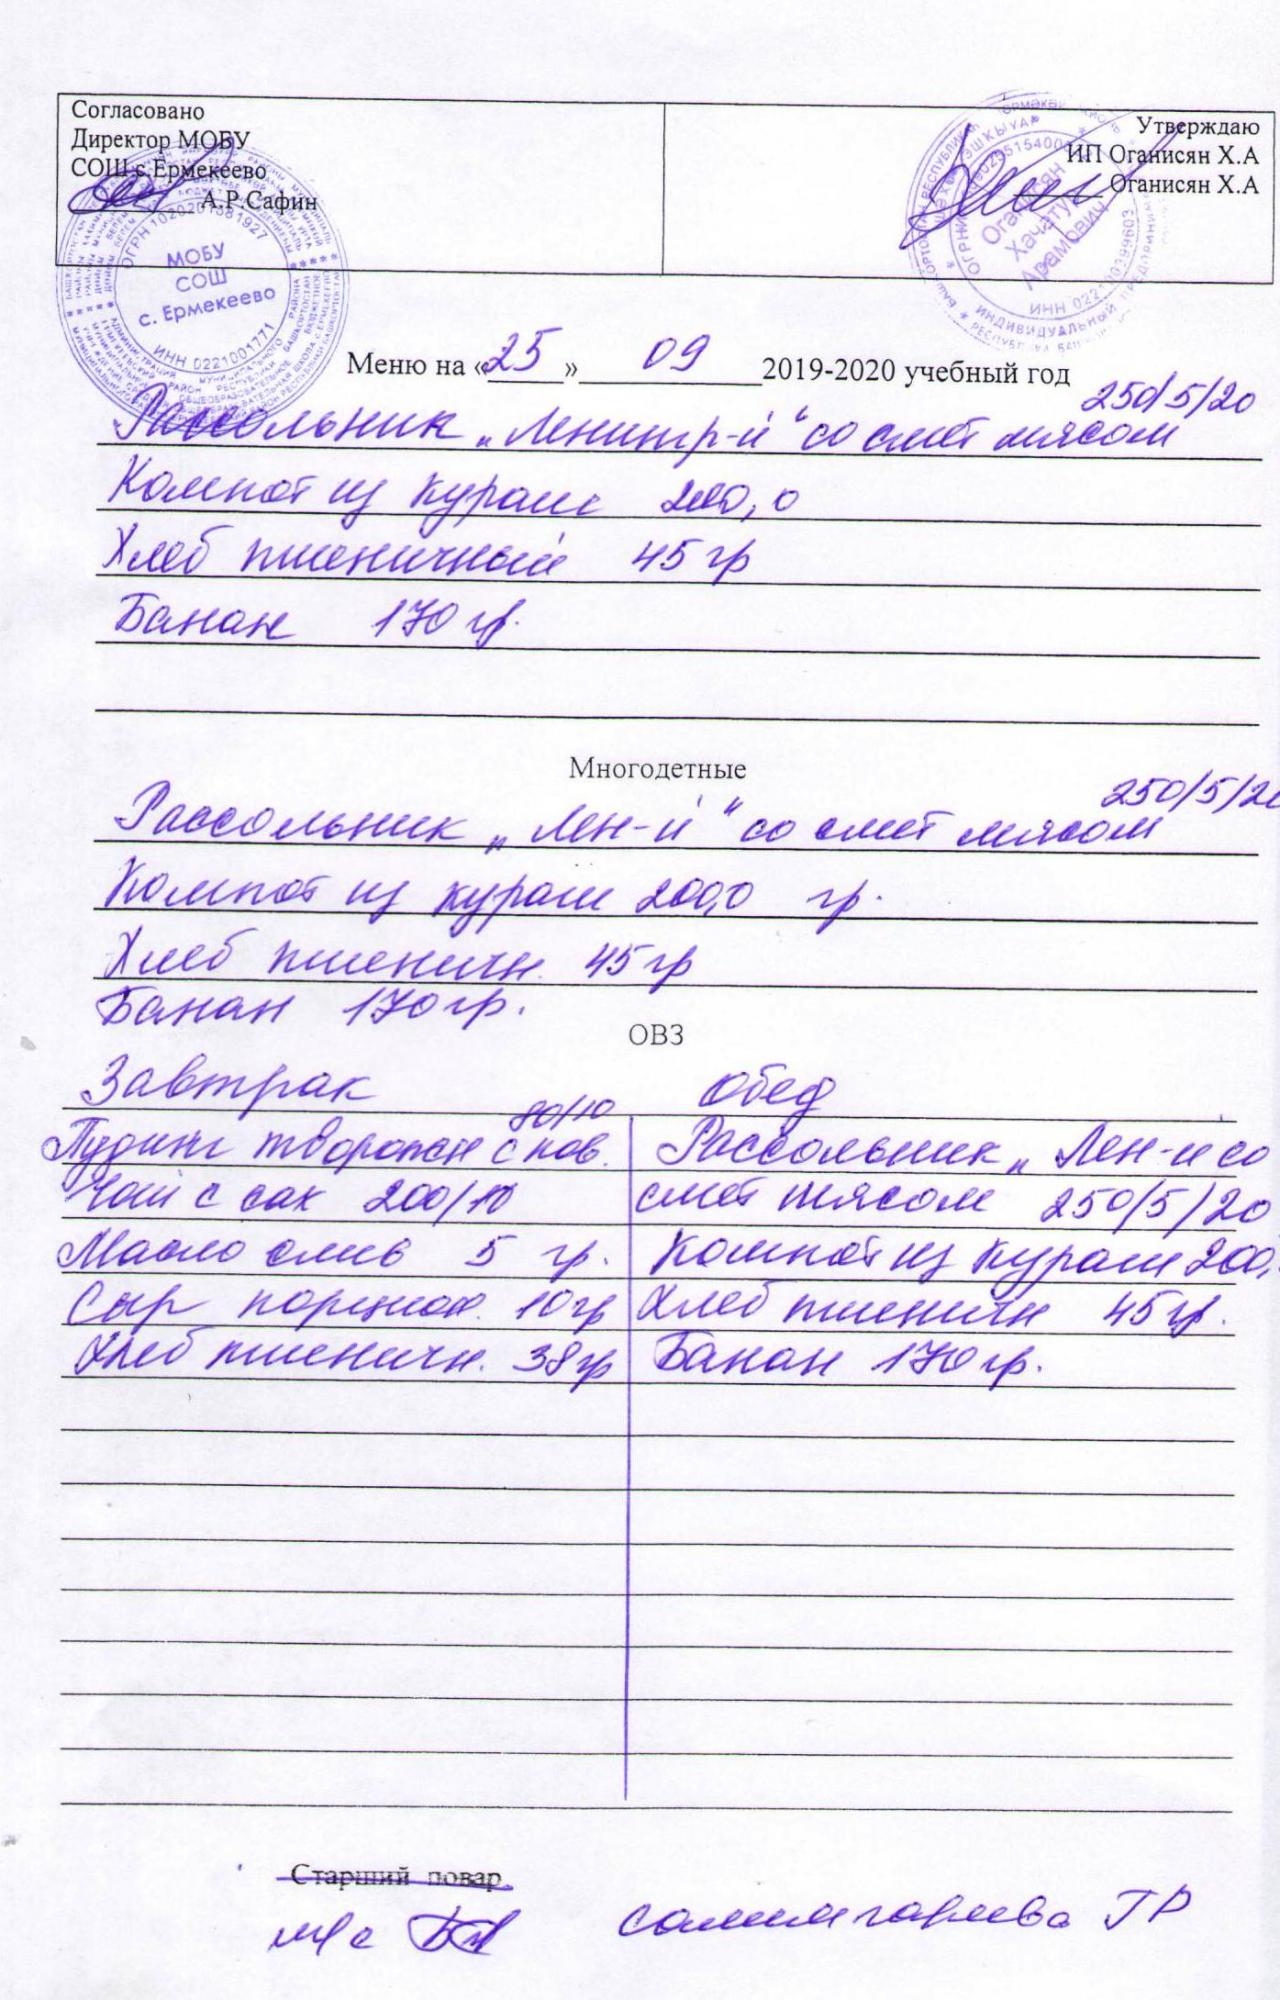 Согласовано
Директор МОБУ
СОШ с.Ермекеево
А.Р.Сафин
Утверждаю
ИП Оганисян Х.А
Оганисян Х.А
ОГРН 1020201581927
МОБУ
СОШ
с. Ермекеево
ИНН 0221001771
Оганисян
Хачатур
Арамович
ИНДИВИДУАЛЬНЫЙ
Меню на «25» 09 2019-2020 учебный год
250/5/20
Рассольник „Ленингр-й“ со смет мясом
Компот из кураги 200,0
Хлеб пшеничный 45 гр
Банан 170 гр.
Многодетные
250/5/20
Рассольник „Лен-й“ со смет мясом
Компот из кураги 200,0 гр.
Хлеб пшеничн. 45 гр
Банан 170 гр.
ОВЗ
Завтрак
Обед
80/10
Пудинг творожн с пов.
Чай с сах 200/10
Масло слив 5 гр.
Сыр порцион. 10 гр
Хлеб пшеничн. 38 гр
Рассольник „Лен-й со
смет мясом 250/5/20
Компот из кураги 200,
Хлеб пшеничн 45 гр.
Банан 170 гр.
Старший повар
м/с
Салимгариева ГР